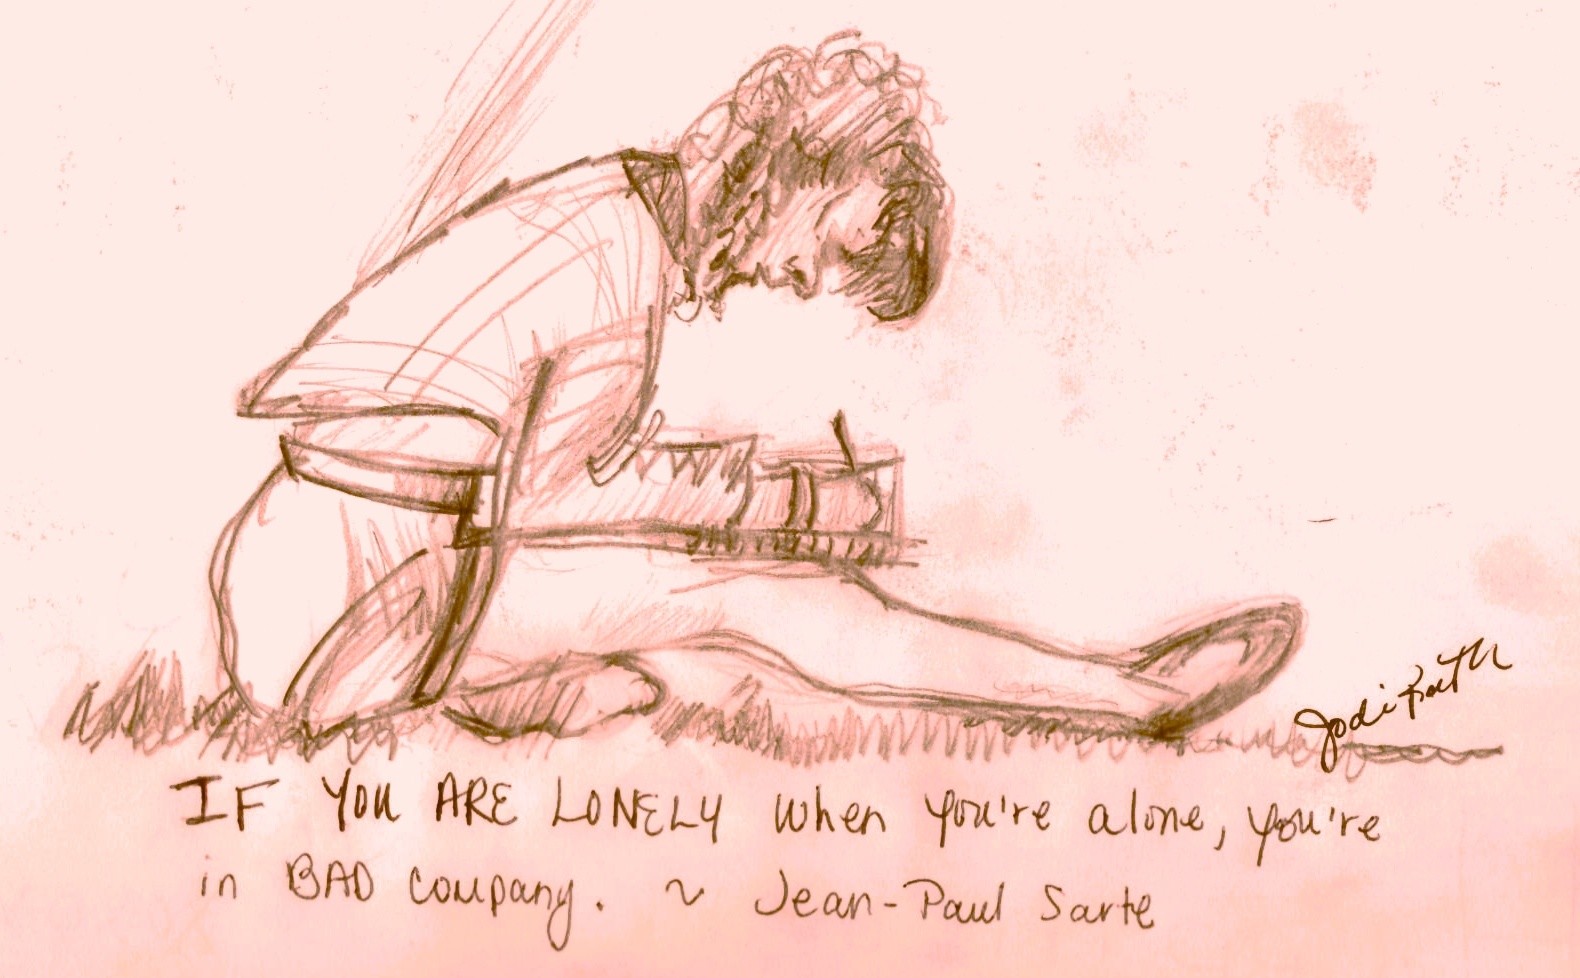 Jodi Rath
IF YOU ARE LONELY when you're alone, you're
in BAD company. ~ Jean-Paul Sarte